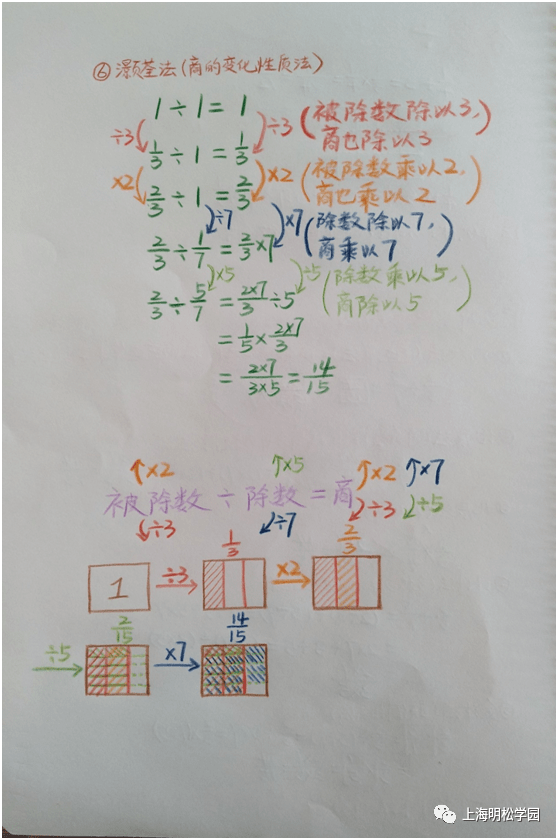 ⑥灏颋荃法(商的变化性质法)
1÷1=1
÷3 ÷3 (被除数除以3,商也除以3)
1/3÷1=1/3
×2 ×2 (被除数乘以2,商也乘以2)
2/3÷1=2/3
÷7 ×7 (除数除以7,商乘以7)
2/3÷1/7=2/3×7
×5 ÷5 (除数乘以5,商除以5)
2/3÷5/7=2×7/3÷5
=1/5×2×7/3
=2×7/3×5=14/15
↑×2 ↑×5 ↑×2 ↑×7
被除数÷除数=商
÷3 ÷7 ÷3 ÷5
1/3 2/3
1 ÷3 ×2
2/15 14/15
÷5 ×7
上海明松学园